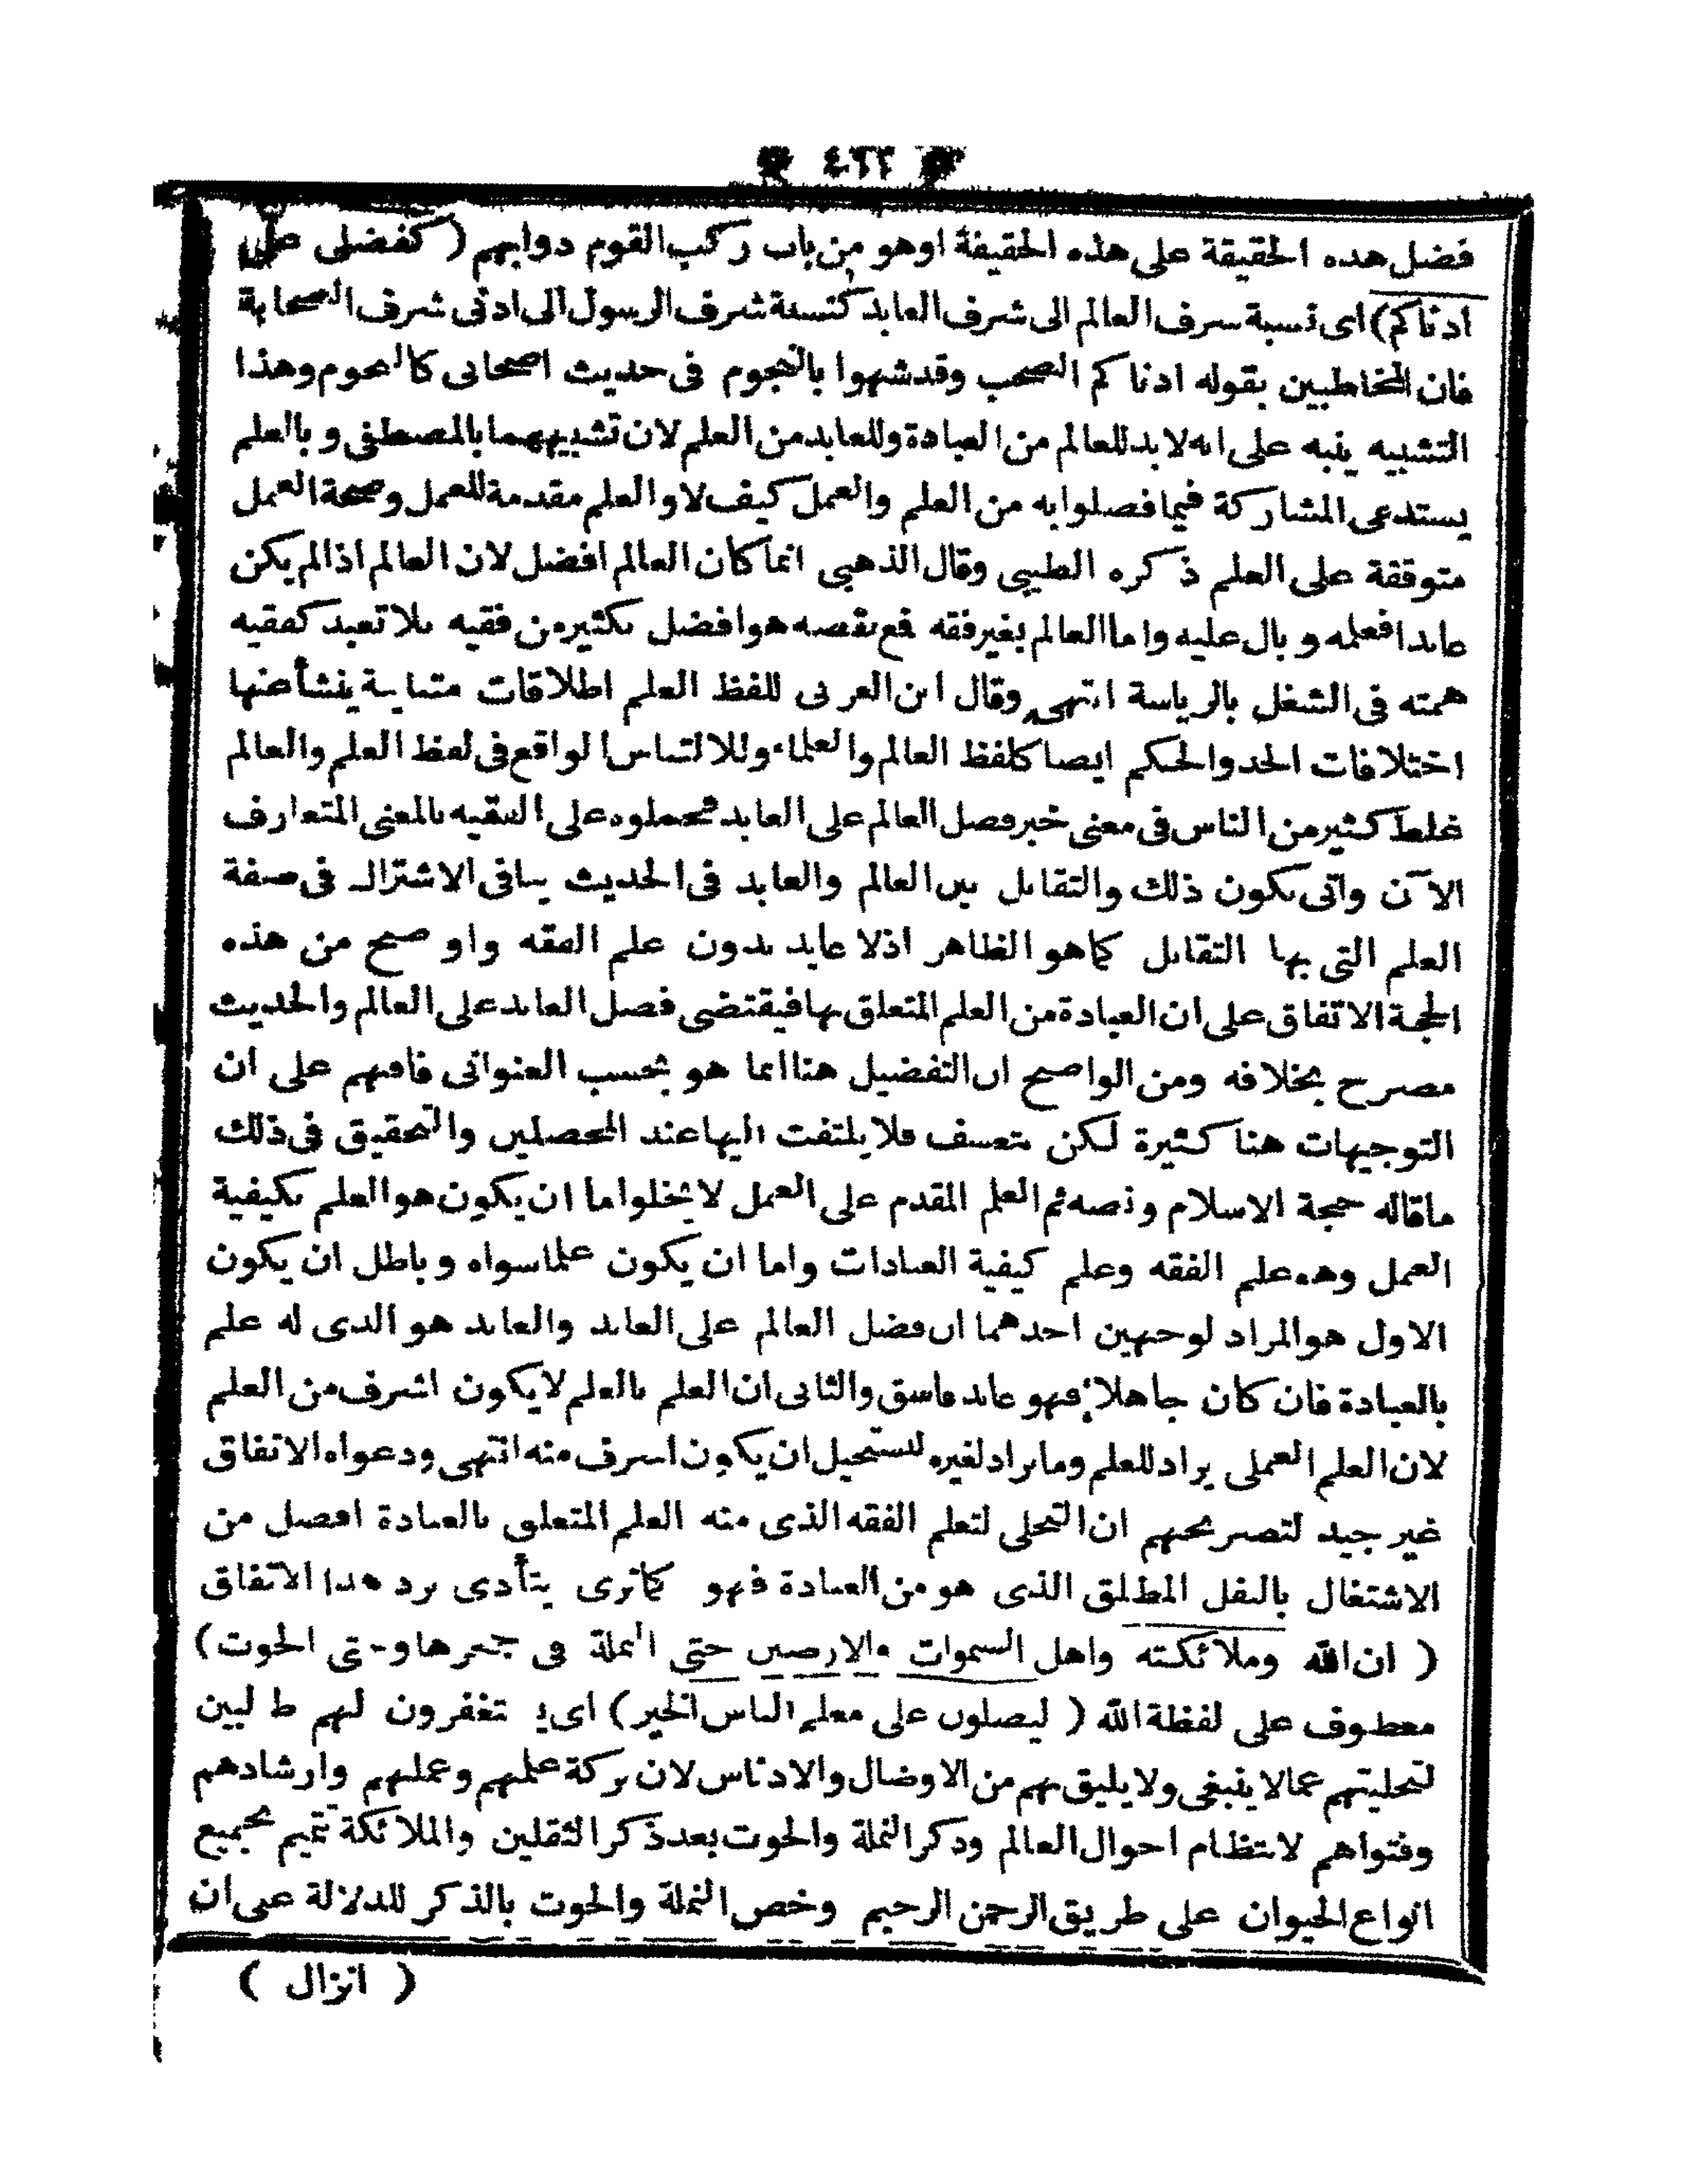 ٤٦٢
فضل هذه الحقيقة على هذه الحقيقة او هو من باب ركب القوم دوابهم ( كفضلى على
ادناكم ) اى نسبة شرف العالم الى شرف العابد كنسبة شرف الرسول الى ادنى شرف الصحابة
فان المخاطبين بقوله ادناكم الصحب وقد شبهوا بالنجوم فى حديث اصحابى كالنجوم وهذا
التشبيه ينبه على انه لابد للعالم من العبادة وللعابد من العلم لان تشبيههما بالمصطفى وبالعلم
يستدعى المشاركة فيما فضلوا به من العلم والعمل كيف لا والعلم مقدمة للعمل وصحة العمل
متوقفة على العلم ذكره الطيبى وقال الذهبى انما كان العالم افضل لان العالم اذا لم يكن
عابدا فعلمه وبال عليه واما العالم بغير فقه فمع نقصه هو افضل بكثير من فقيه بلا تعبد كفقيه
همته فى الشغل بالرياسة انتهى وقال ابن العربى للفظ العلم اطلاقات متباينة ينشأ عنها
اختلافات الحد والحكم ايضا كلفظ العالم والعلماء وللالتباس الواقع فى لفظ العلم والعالم
غلط كثير من الناس فى معنى خبر فضل العالم على العابد فحملوه على الفقيه بالمعنى المتعارف
الآن وانى يكون ذلك والتقابل بين العالم والعابد فى الحديث ينافى الاشتراك فى صفة
العلم التى بها التقابل كما هو الظاهر اذلا عابد بدون علم الفقه واوضح من هذه
الحجة الاتفاق على ان العبادة من العلم المتعلق بها فيقتضى فضل العابد على العالم والحديث
مصرح بخلافه ومن الواضح ان التفضيل هنا انما هو بحسب العنوانى فافهم على ان
التوجيهات هنا كثيرة لكن بتعسف فلا يلتفت اليها عند المحصلين والتحقيق فى ذلك
ما قاله حجة الاسلام ونصه ثم العلم المقدم على العمل لا يخلو اما ان يكون هو العلم بكيفية
العمل وهو علم الفقه وعلم كيفية العبادات واما ان يكون علما سواه وباطل ان يكون
الاول هو المراد لوجهين احدهما ان فضل العالم على العابد والعابد هو الذى له علم
بالعبادة فان كان جاهلا فهو عابد فاسق والثانى ان العلم بالعلم لا يكون اشرف من العلم
لان العلم العملى يراد للعلم وما يراد لغيره يستحيل ان يكون اشرف منه انتهى ودعواه الاتفاق
غير جيد لتصريحهم ان التحلى لتعلم الفقه الذى منه العلم المتعلق بالعبادة افضل من
الاشتغال بالنفل المطلق الذى هو من العبادة فهو كما ترى يتأدى برد هذا الاتفاق
( ان الله وملائكته واهل السموات والارضين حتى النملة فى جحرها وحتى الحوت )
معطوف على لفظة الله ( ليصلون على معلم الناس الخير ) اى يستغفرون لهم طالبين
لتحليتهم عما لا ينبغى ولا يليق بهم من الاوضال والادناس لان بركة علمهم وعملهم وارشادهم
وفتواهم لانتظام احوال العالم وذكر النملة والحوت بعد ذكر الثقلين والملائكة تتميم بجميع
انواع الحيوان على طريق الرحمن الرحيم وخص النملة والحوت بالذكر للدلالة على ان
( انزال )